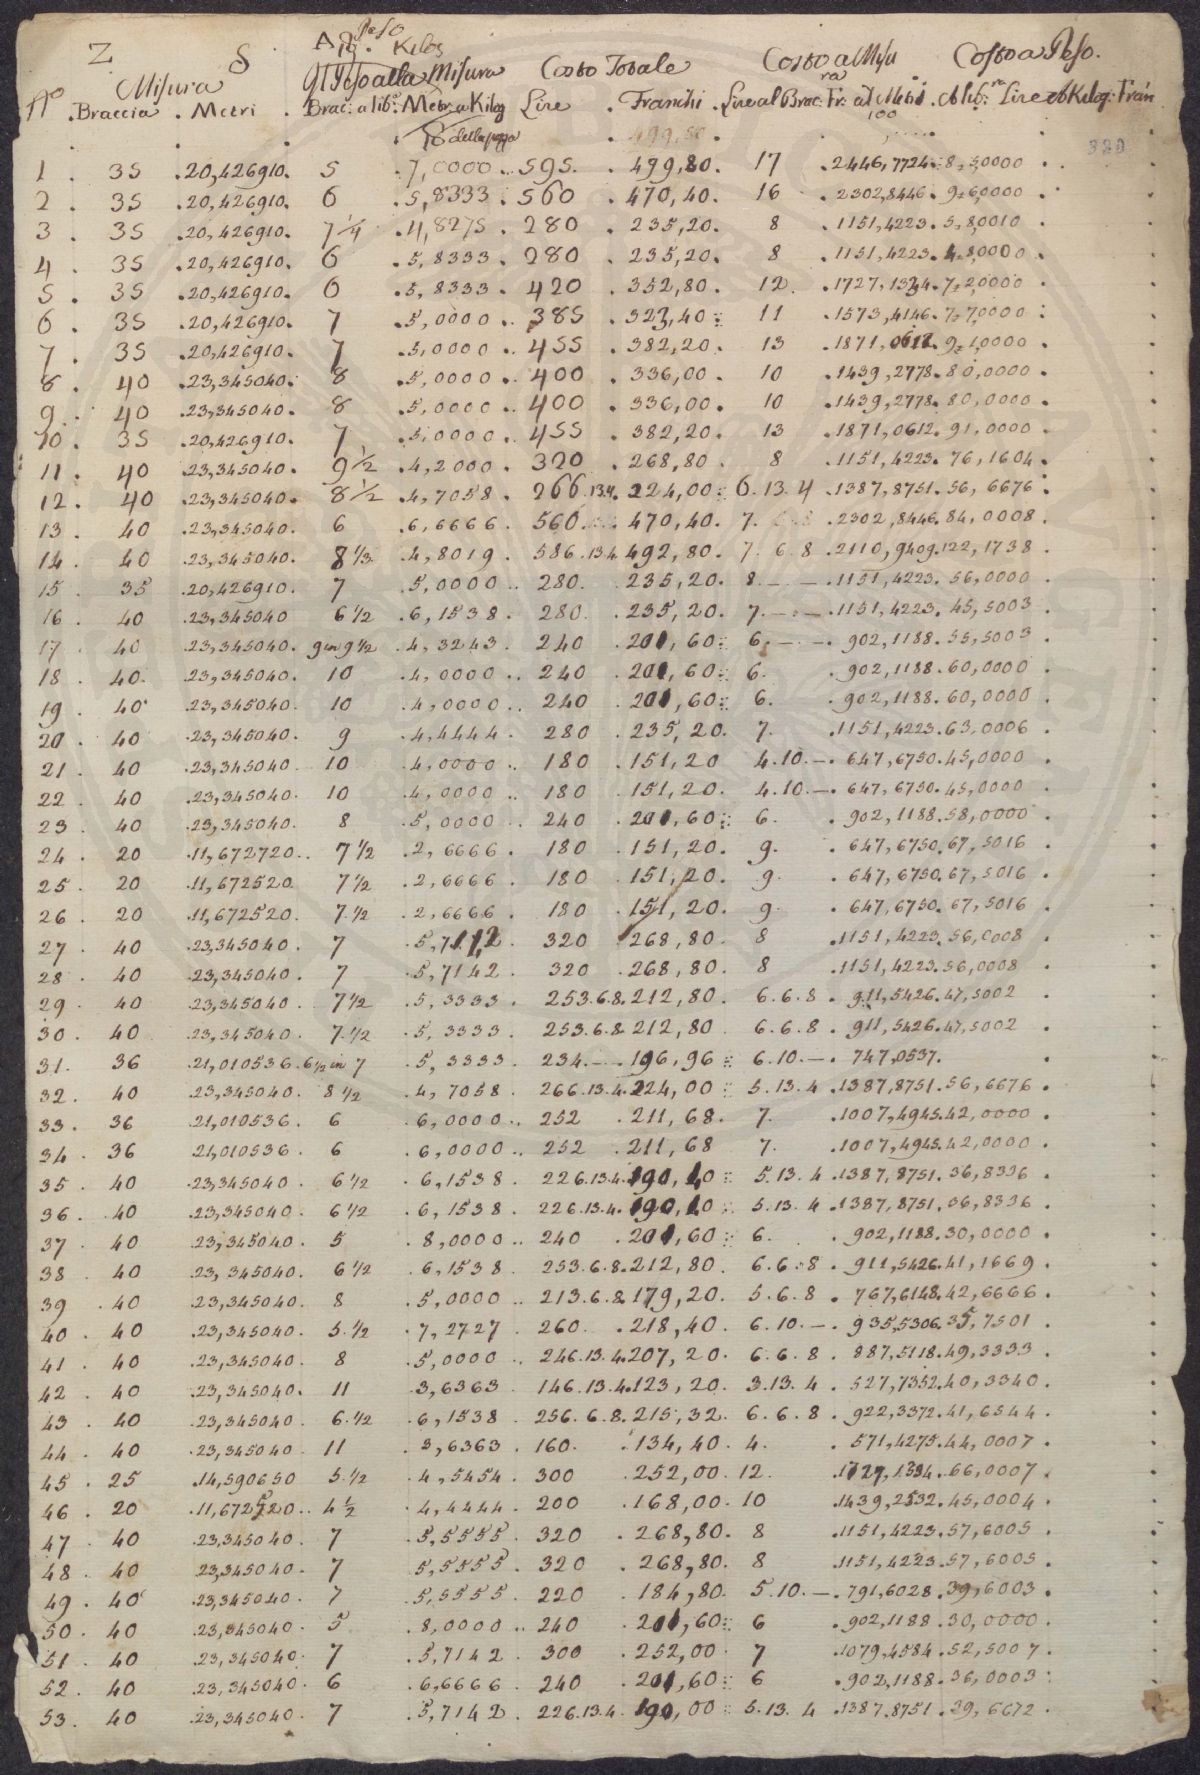 Z S A lb. Peso Kilog
Misura gl Peso alla Misura Costo Totale Costo a Misura Costo a Peso.
No Braccia . Metri . Brac: a lib. Metr. a Kilog Lire . Franchi . Lire al Brac: Fr. al Metri . A lib.ra Lire A Kilog: Fran
della pezza . 499,80 . 100
320
1 . 35 .20,426910. 5 .7,0000 .. 595. . 499,80. 17 .2446,7724. 8,50000 . .
2 . 35 .20,426910. 6 .5,8333 . 560 . 470,40. 16 .2302,8446. 9,60000 .
3 . 35 .20,426910. 7 1/4 .4,8275 . 280 . 235,20. 8 .1151,4223. 5,80010 .
4 . 35 .20,426910. 6 .5,8333 . 280 . 235,20. 8 .1151,4223. 4,80000 .
5 . 35 .20,426910. 6 .5,8333 . 420 . 352,80. 12. .1727,1334. 7,20000 .
6 . 35 .20,426910. 7 .5,0000 .. 385 . 323,40 11 .1573,4146. 7,70000 :
7 . 35 .20,426910. 7 .5,0000 .. 455 . 382,20. 13 .1871,0612. 9,10000 .
8 . 40 .23,345040. 8 .5,0000 .. 400 . 336,00 . 10 .1439,2778. 80,0000 .
9 . 40 .23,345040. 8 .5,0000 .. 400 . 336,00. 10 .1439,2778. 80,0000 .
10 . 35 .20,426910. 7 .5,0000 .. 455 . 382,20. 13 .1871,0612. 91,0000 .
11 . 40 .23,345040. 9 1/2 .4,2000 . 320 . 268,80 . 8 .1151,4223. 76,1604.
12 . 40 .23,345040. 8 1/2 .4,7058 . 266.13.4. 224,00 6.13.4 .1387,8751. 56,6676.
13 . 40 .23,345040. 6 .6,6666 . 560 470,40. 7. .2302,8446. 84,0008.
14 . 40 .23,345040. 8 1/3. .4,8019 . 586.13.4 492,80. 7.6.8 .2110,9409. 122,1738 .
15 . 35 .20,426910. 7 .5,0000 .. 280. .235,20. 8.—— .1151,4223. 56,0000 .
16 . 40 .23,345040 6 1/2 .6,1538 . 280. .235,20. 7.—— .1151,4223. 45,5003 .
17 . 40 .23,345040. 9 in 9 1/2 .4,3243 . 240 .201,60 6.—— . 902,1188. 55,5003 .
18 . 40. .23,345040. 10 .4,0000 .. 240 .201,60 6. . 902,1188. 60,0000 .
19 . 40 .23,345040. 10 .4,0000 .. 240 .201,60 6. . 902,1188. 60,0000 .
20 . 40 .23,345040. 9 .4,4444 . 280 .235,20. 7. .1151,4223. 63,0006 .
21 . 40 .23,345040. 10 .4,0000 .. 180 .151,20 4.10.— . 647,6750. 45,0000 .
22 . 40 .23,345040. 10 .4,0000 .. 180 .151,20. 4.10.— . 647,6750. 45,0000 .
23 . 40 .23,345040. 8 .5,0000 .. 240 .201,60 6. . 902,1188. 58,0000 .
24 . 20 .11,672720.. 7 1/2 .2,6666 . 180 .151,20. 9. . 647,6750. 67,5016 .
25 . 20 .11,672520. 7 1/2 .2,6666 . 180 .151,20. 9. . 647,6750. 67,5016 .
26 . 20 .11,672520. 7 1/2 .2,6666 . 180 .151,20. 9. . 647,6750. 67,5016 .
27 . 40 .23,345040. 7 .5,7142. 320 .268,80. 8 .1151,4223. 56,0008 .
28 . 40 .23,345040. 7 .5,7142 . 320 .268,80. 8 .1151,4223. 56,0008 .
29 . 40 .23,345040. 7 1/2 .5,3333 . 253.6.8. 212,80. 6.6.8 . 911,5426. 47,5002 .
30 . 40 .23,345040. 7 1/2 .5,3333 . 253.6.8. 212,80 6.6.8 . 911,5426. 47,5002 .
31 . 36 .21,010536. 6 1/2 in 7 .5,3333 . 234.—— 196,96 6.10.— . 747,0537.
32 . 40 .23,345040. 8 1/2 .4,7058 . 266.13.4. 224,00 5.13.4 .1387,8751. 56,6676 .
33 . 36 .21,010536 . 6 .6,0000 .. 252 .211,68. 7. .1007,4945. 42,0000 .
34 . 36 .21,010536 . 6 .6,0000 .. 252 .211,68 7. .1007,4945. 42,0000 .
35 . 40 .23,345040. 6 1/2 .6,1538 . 226.13.4. 190,40 5.13.4 .1387,8751. 36,8336 .
36 . 40 .23,345040. 6 1/2 .6,1538 . 226.13.4. 190,40 5.13.4 .1387,8751. 36,8336 .
37 . 40 .23,345040. 5 .8,0000 .. 240 .201,60 6. . 902,1188. 30,0000 .
38 . 40 .23,345040. 6 1/2 .6,1538 . 253.6.8. 212,80. 6.6.8 . 911,5426. 41,1669 .
39 . 40 .23,345040. 8 .5,0000 .. 213.6.8. 179,20. 5.6.8 . 767,6148. 42,6666 .
40 . 40 .23,345040. 5 1/2 .7,2727 . 260. .218,40. 6.10.— . 935,5306. 35,7501 .
41 . 40 .23,345040. 8 .5,0000 .. 246.13.4. 207,20. 6.6.8 . 887,5118. 49,3333 .
42 . 40 .23,345040. 11 .3,6363 . 146.13.4. 123,20. 3.13.4 . 527,7352. 40,3340.
43 . 40 .23,345040. 6 1/2 .6,1538 . 256.6.8. 215,32. 6.6.8 . 922,3372. 41,6544 .
44 . 40 .23,345040. 11 .3,6363 . 160. .134,40. 4. . 571,4275. 44,0007 .
45 . 25 .14,590650 5 1/2 .4,5454 . 300 .252,00. 12. .1727,1334. 66,0007 .
46 . 20 .11,672520.. 4 1/2 .4,4444 . 200 .168,00. 10 .1439,2532. 45,0004 .
47 . 40 .23,345040. 7 .5,5555 . 320 .268,80. 8 .1151,4223. 57,6005 .
48 . 40 .23,345040. 7 .5,5555 . 320 .268,80. 8 .1151,4223. 57,6005 .
49 . 40 .23,345040. 7 .5,5555 . 220 .184,80. 5.10.— . 791,6028. 39,6003 .
50 . 40 .23,345040. 5 .8,0000 .. 240 .201,60 6 . 902,1188. 30,0000 .
51 . 40 .23,345040. 7 .5,7142 . 300 .252,00. 7 .1079,4584. 52,5007 .
52 . 40 .23,345040. 6 .6,6666 . 240 .201,60 6 . 902,1188. 36,0003 :
53 . 40 .23,345040. 7 .5,7142 . 226.13.4. 190,00 5.13.4 .1387,8751. 39,6672 .